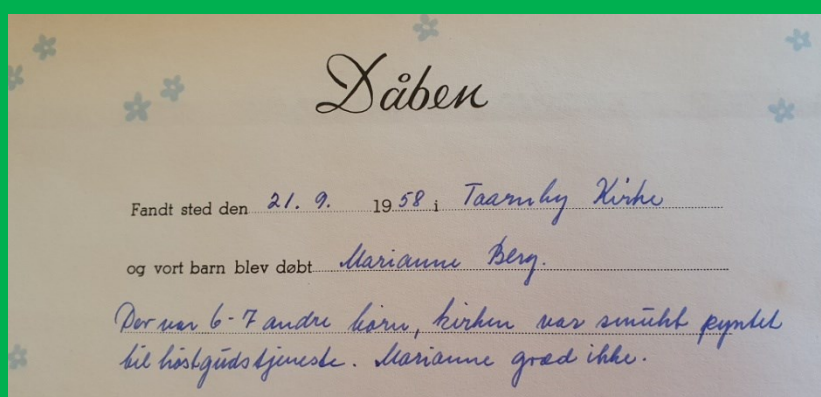 Dåben
Fandt sted den 21. 9. 1958 i Taarnby Kirke
og vort barn blev døbt Marianne Berg.
Der var 6-7 andre børn, kirken var smukt pyntet
til høstgudstjeneste. Marianne græd ikke.